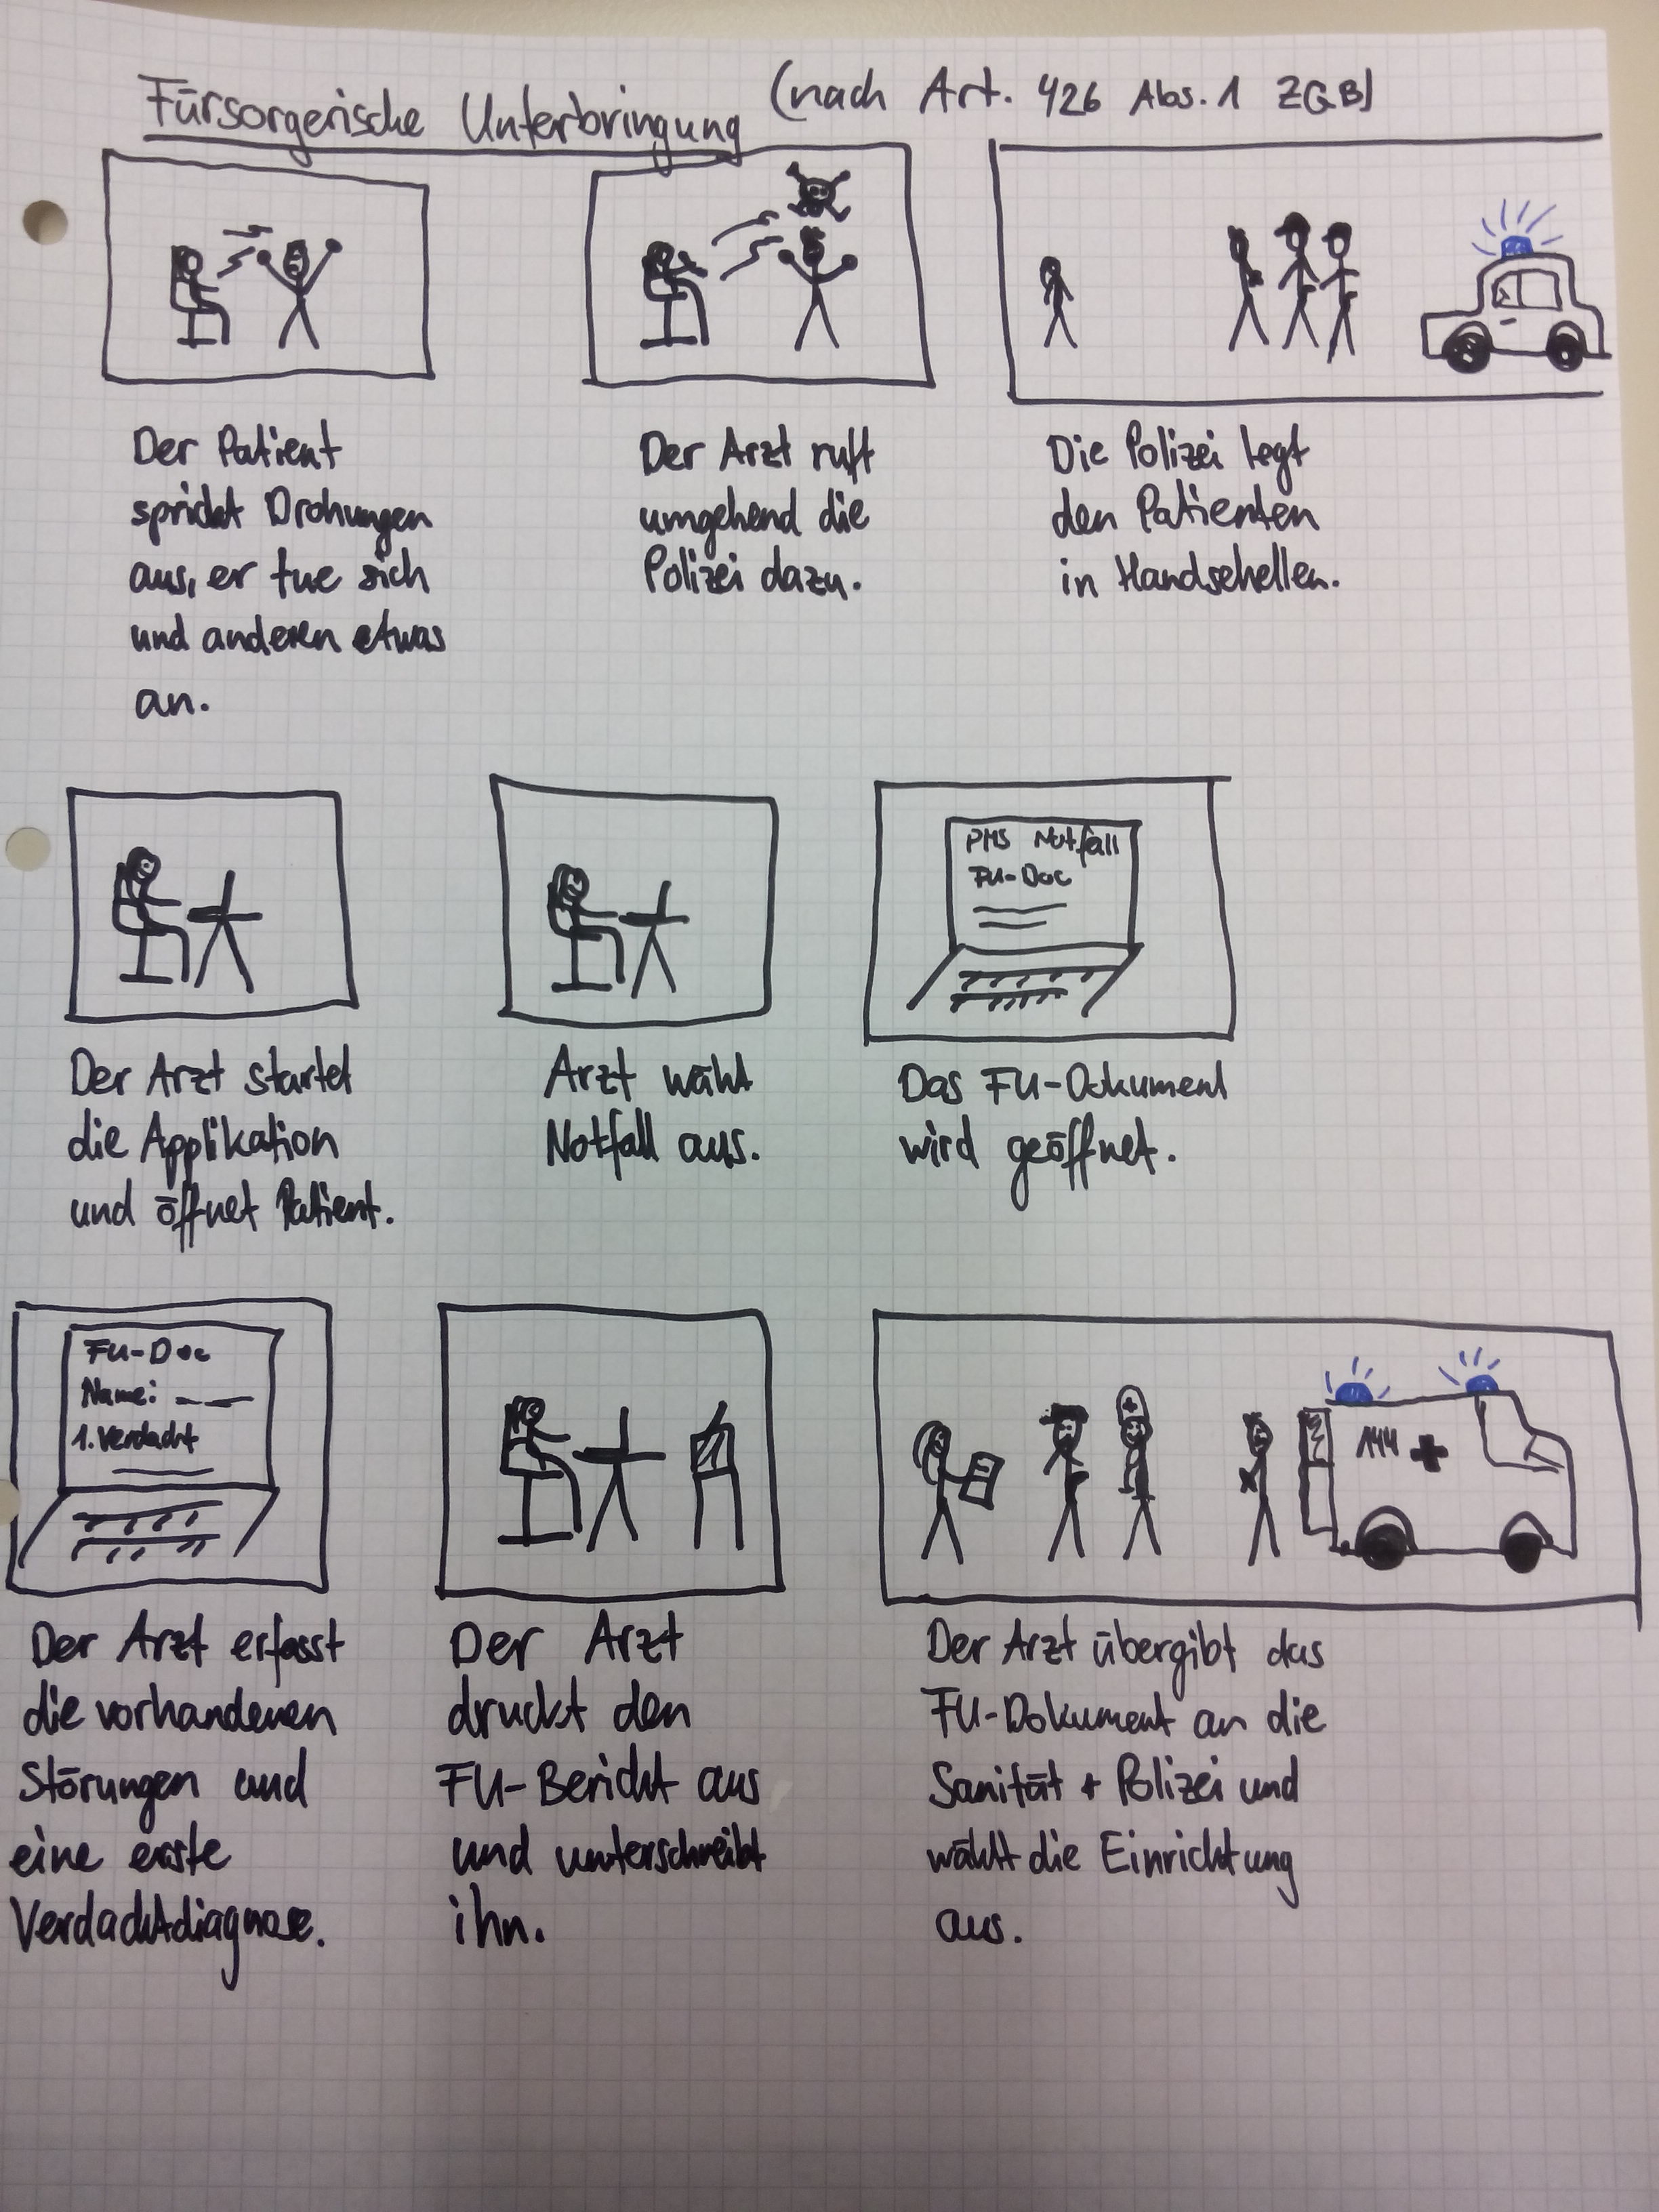 Fürsorgerische Unterbringung (nach Art. 426 Abs. 1 ZGB)
Der Patient
spricht Drohungen
aus, er tue sich
und anderen etwas
an.
Der Arzt ruft
umgehend die
Polizei dazu.
Die Polizei legt
den Patienten
in Handschellen.
Der Arzt startet
die Applikation
und öffnet Patient.
Arzt wählt
Notfall aus.
PMS Notfall
FU-Doc
Das FU-Dokument
wird geöffnet.
FU-Doc
Name: _ __
1. Verdacht
Der Arzt erfasst
die vorhandenen
Störungen und
eine erste
Verdachtdiagnose.
Der Arzt
druckt den
FU-Bericht aus
und unterschreibt
ihn.
144
Der Arzt übergibt das
FU-Dokument an die
Sanität + Polizei und
wählt die Einrichtung
aus.